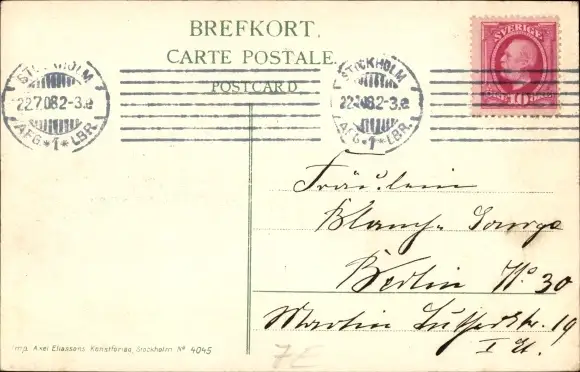 BREFKORT.
CARTE POSTALE.
POSTCARD
SVERIGE
STOCKHOLM
22.7.08.2-3.e
AFG * 1 * LBR.
STOCKHOLM
22.7.08.2-3.e
AFG * 1 * LBR.
Fräulein
Berlin No 30
Martin Lutherstr. 19
I Et.
Imp. Axel Eliassons Konstförlag, Stockholm No 4045
7E